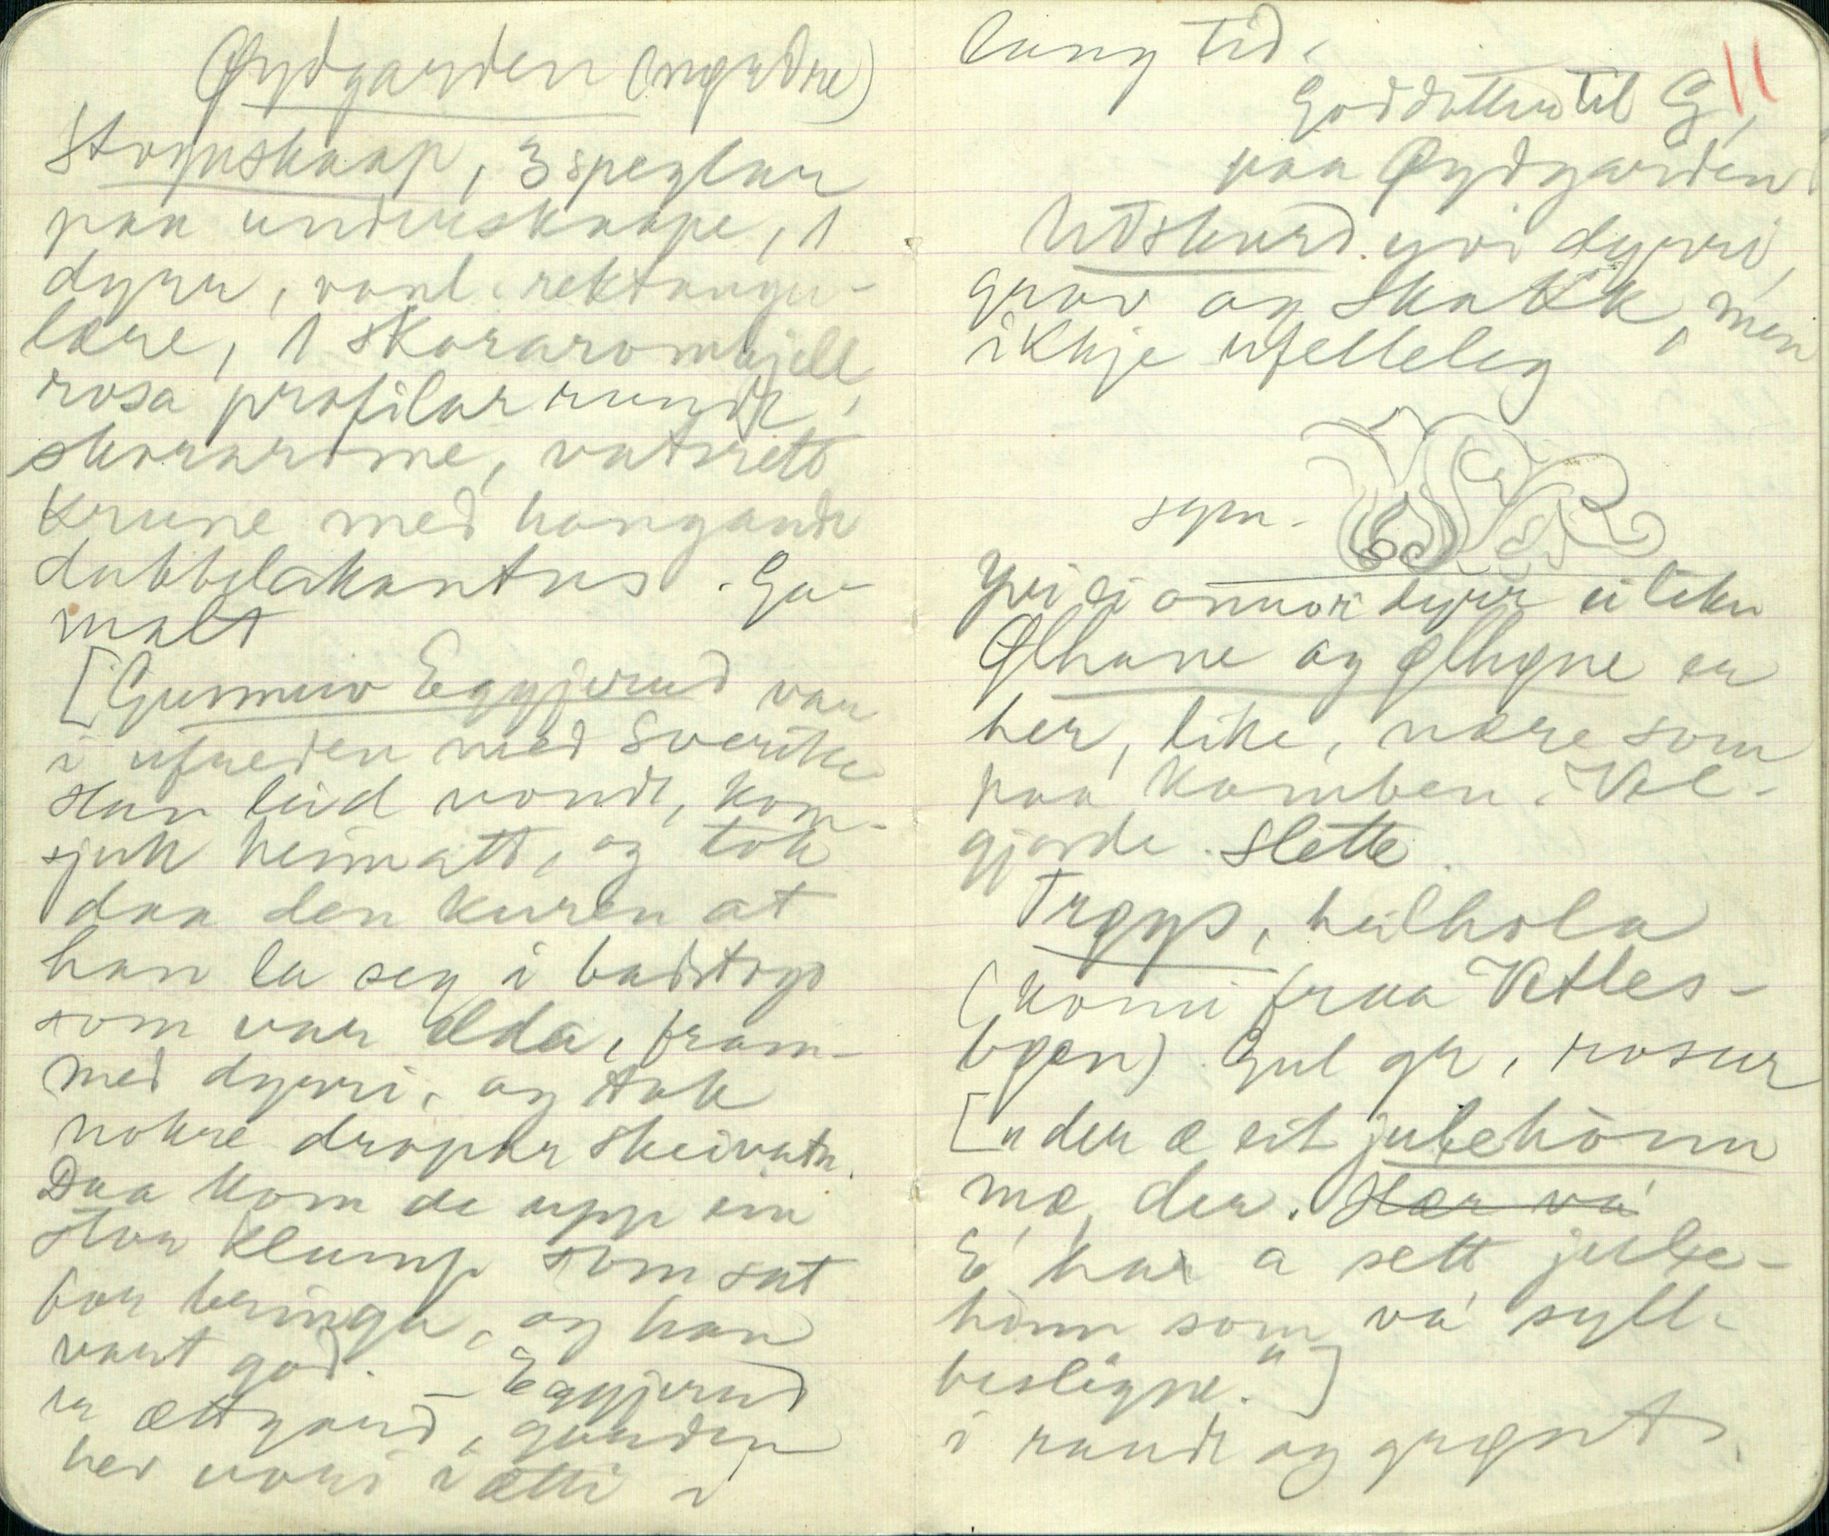 Øydgarden (nørdre)
Stogoskaap, 3 speglar
paa underskaape, 1
dyrr, vanl. rektangu-
lære, 1 skoraromhjell,
rosa profilar rundt
skorarome, vatsrett
krune med hangande
dubbelakantus. Ga-
malt
[Gunnar Eggjerud var
i ufreden med Sverike
Han leid vondt, kom
sjuk heimatt, og tok
daa den kuren at
han la seg i badstogo
som var elda, fram-
med dyrri, og tok
nokre dropar skeivatn.
Daa kom de upp ein
stor klump som sat
for bringa, og han
vart god. – Eggjerud
er ættgard, garden
hev vori i ætti i
lang tid.
11
Goddotter til G.
paa Øydgarden
Utskurd yvi dyrri,
grov og skakk, men
ikkje ufelleleg
sym.
Yvi ei onnor dyrr ei liker
Ølhane og ølhøne er
her, like, nære som
paa kamben. Vel-
gjorde. Slette.
Trøys, heilhola
(komi fraa Vetles-
bøen) Gul gr, rosur
["der æ eit jubehònn
mæ der. Hær vá
E har a sett jube-
hònn som vá syll-
beslegne."]
i raudt og grønt.